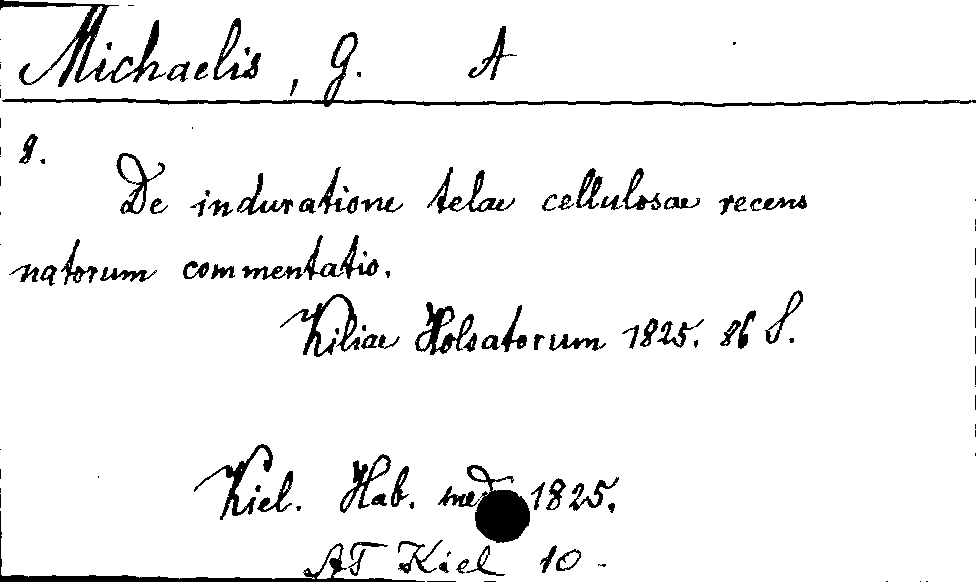 Michaelis, G. A
8.
De induratione telae cellulosae recens
natorum commentatio.
Kiliae Holsatorum 1825. 86 S.
Kiel. Hab. med 1825.
AT Kiel 10.